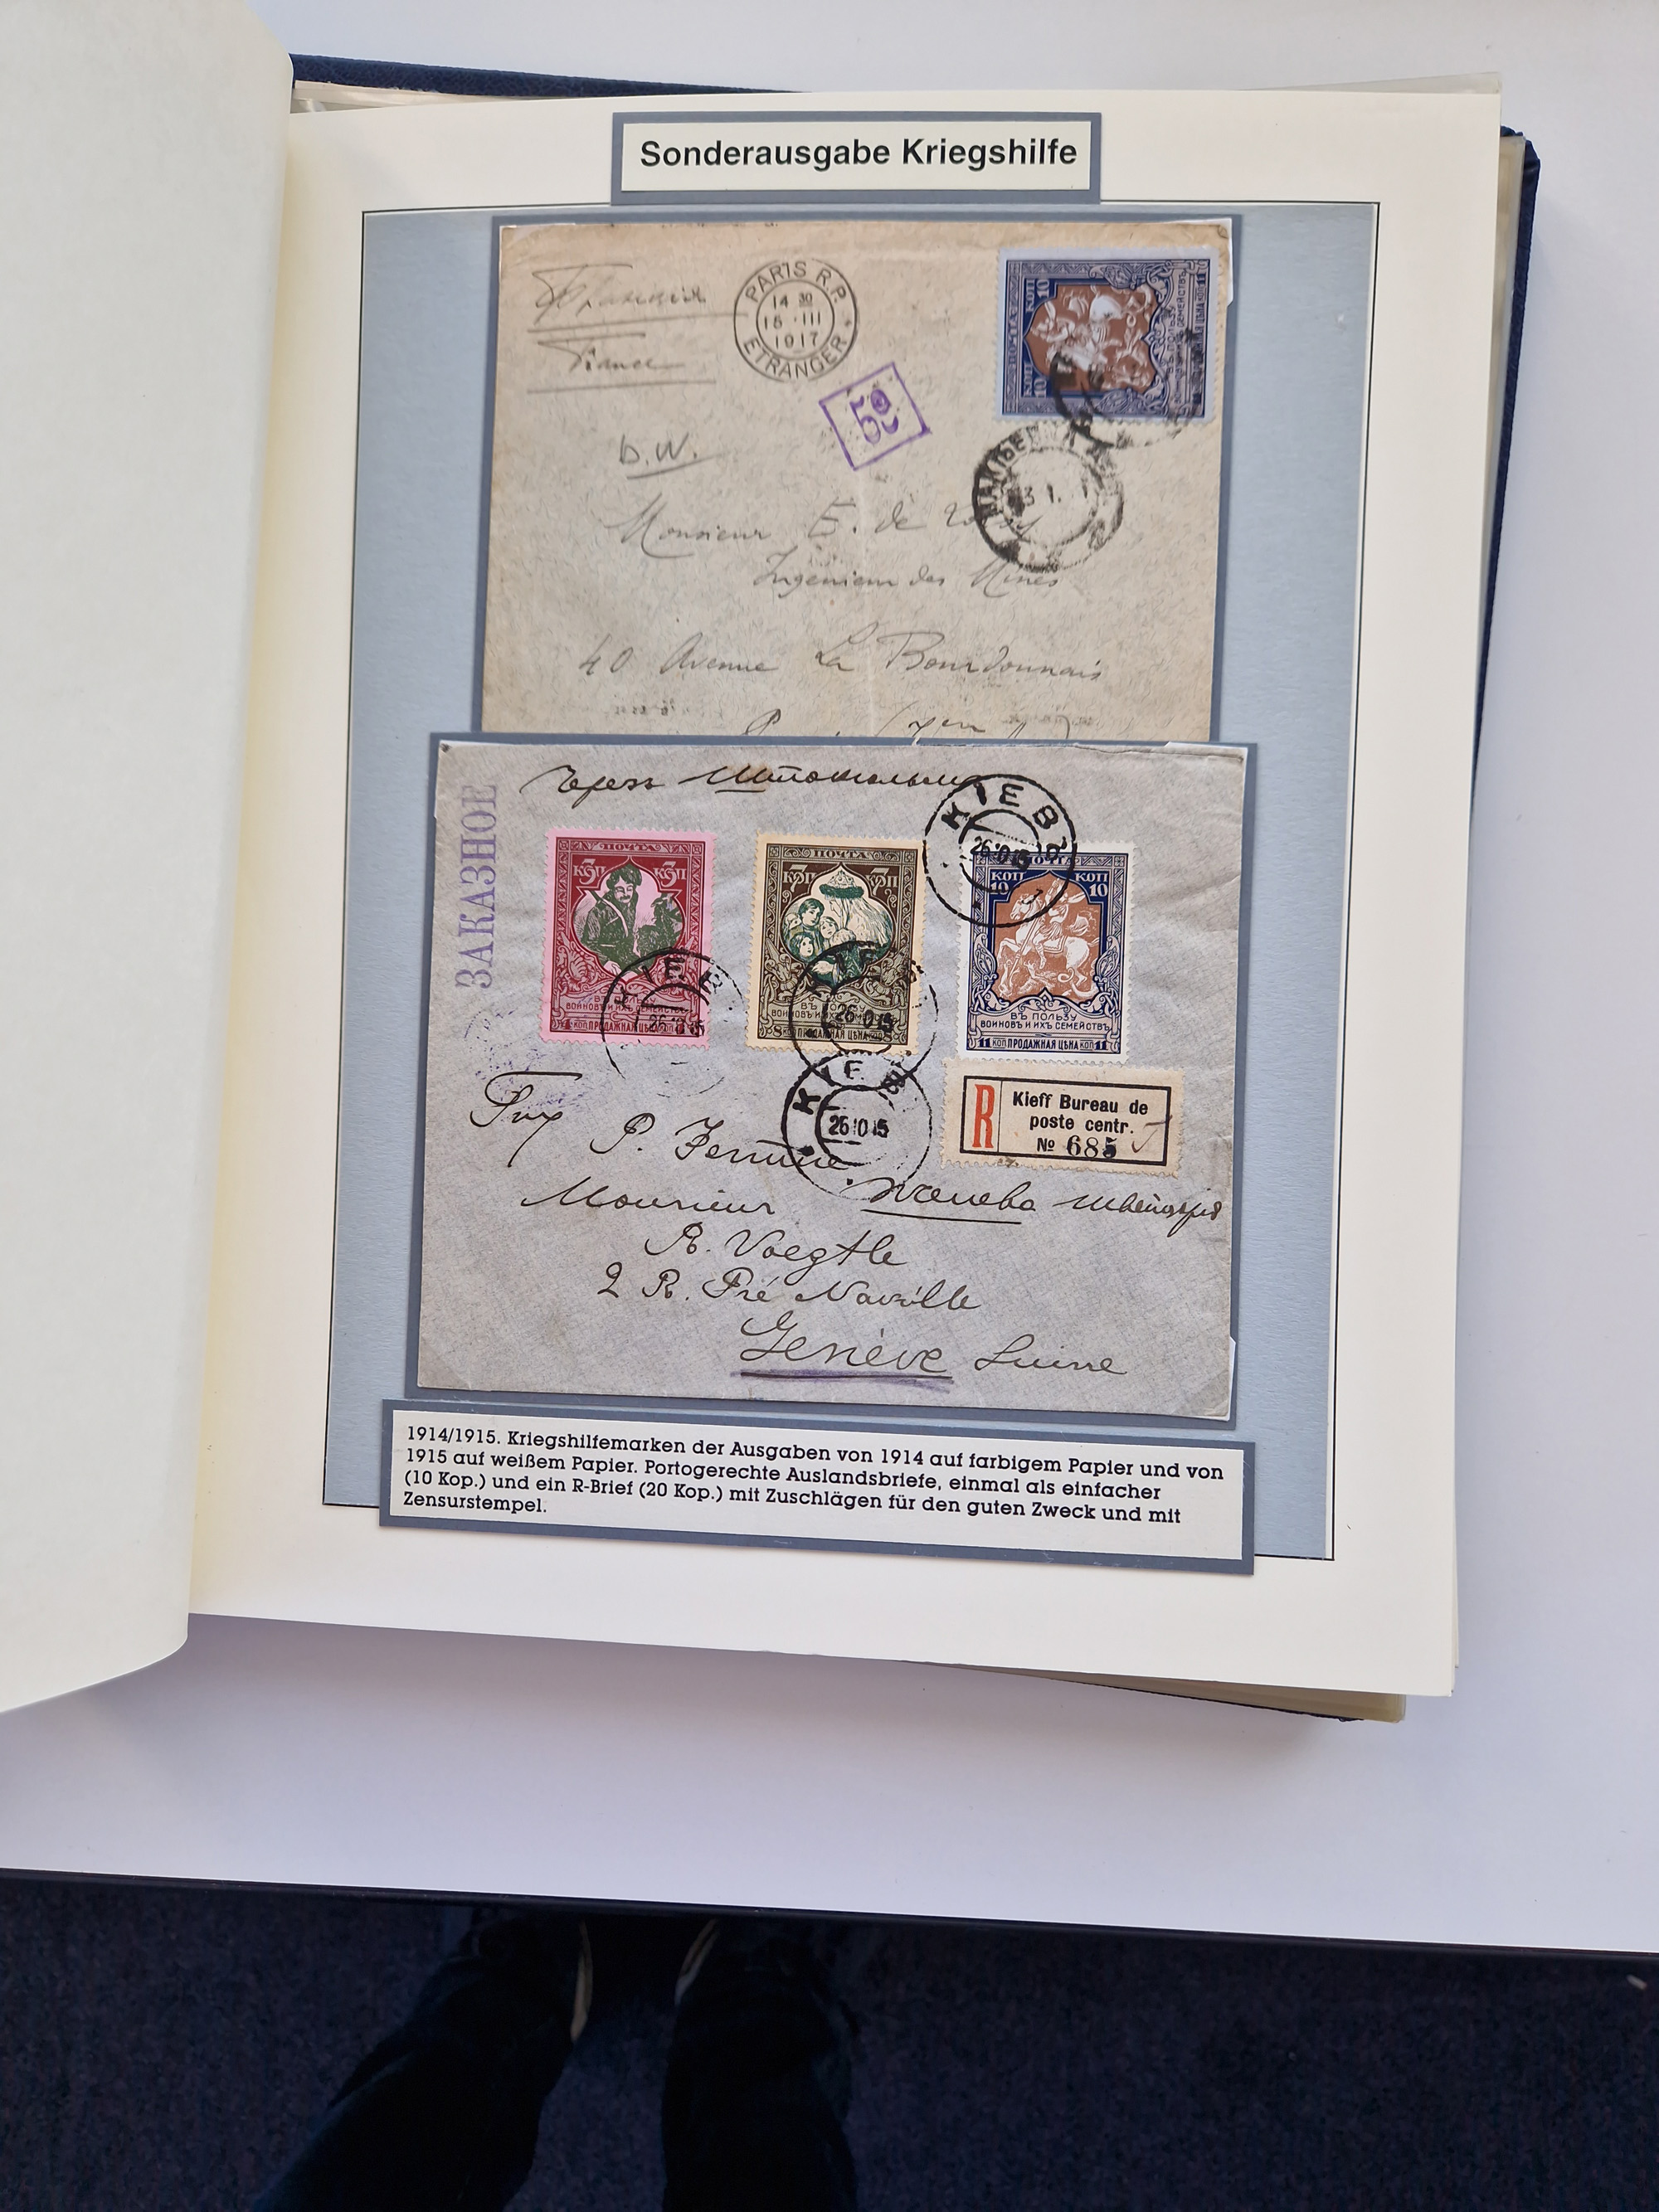 Sonderausgabe Kriegshilfe
France
PARIS R.P.
14 30
15 · III
1917
ETRANGER
КОП 10
ПОЧТА
КОП 10
ВЪ ПОЛЬЗУ
59
Monsieur E. de
Ingenieur des Mines
40 Avenue La Bourdonnais
Черезъ Штокгольмъ
ЗАКАЗНОЕ
ПОЧТА
3 КОП 3 КОП
ВЪ ПОЛЬЗУ
ВОИНОВЪ И ИХЪ СЕМЕЙСТВЪ
ПРОДАЖНАЯ ЦѢНА
КІЕВЪ
ПОЧТА
7 КОП 7 КОП
ВЪ ПОЛЬЗУ
ВОИНОВЪ И ИХЪ СЕМЕЙСТВЪ
8 КОП ПРОДАЖНАЯ ЦѢНА КОП 8
КІЕВЪ
26 10 15
КІЕВЪ
26 10 15
ПОЧТА
КОП 10 КОП 10
ВЪ ПОЛЬЗУ
ВОИНОВЪ И ИХЪ СЕМЕЙСТВЪ
11 КОП ПРОДАЖНАЯ ЦѢНА КОП 11
КІЕВЪ
26 10 15
R
Kieff Bureau de
poste centr.
№ 685
Monsieur
Женева Швейцарія
R. Voegtle
2 R. Pré Naville
Genève Suisse
1914/1915. Kriegshilfemarken der Ausgaben von 1914 auf farbigem Papier und von
1915 auf weißem Papier. Portogerechte Auslandsbriefe, einmal als einfacher
(10 Kop.) und ein R-Brief (20 Kop.) mit Zuschlägen für den guten Zweck und mit
Zensurstempel.